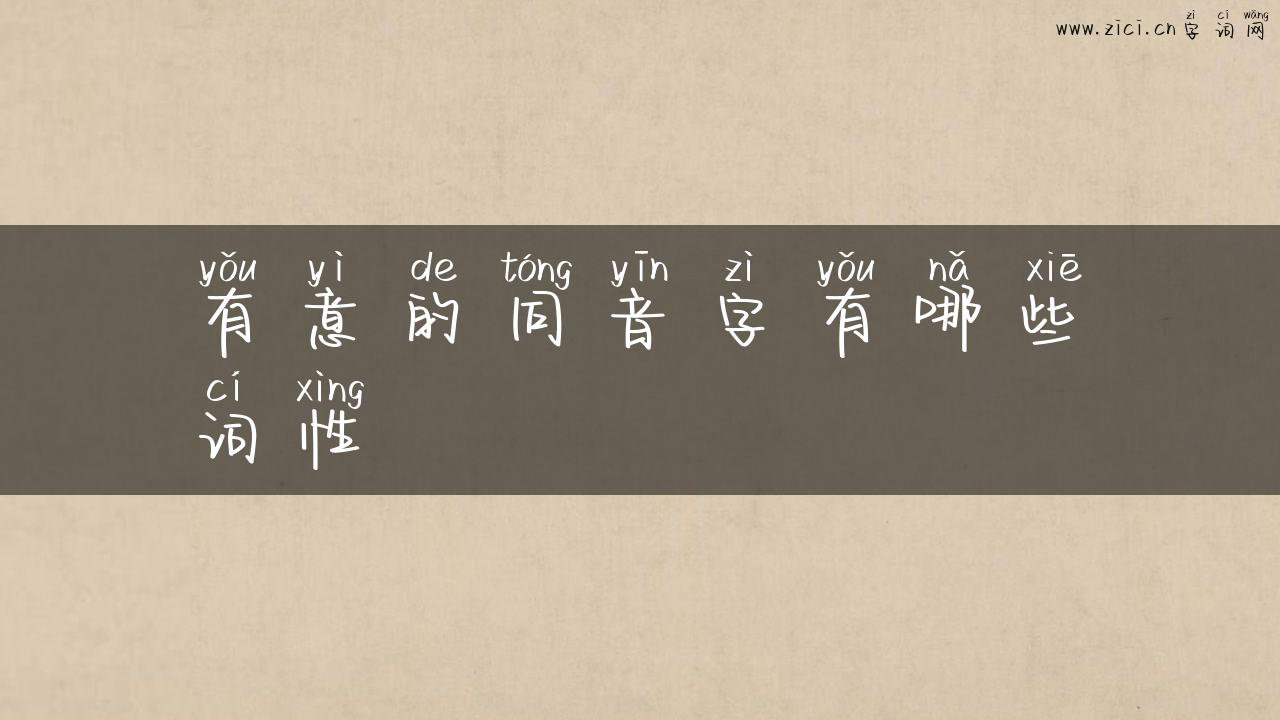 zì cí wǎng
www.zici.cn 字词网
yǒu yì de tóng yīn zì yǒu nǎ xiē
有意的同音字有哪些
cí xìng
词性